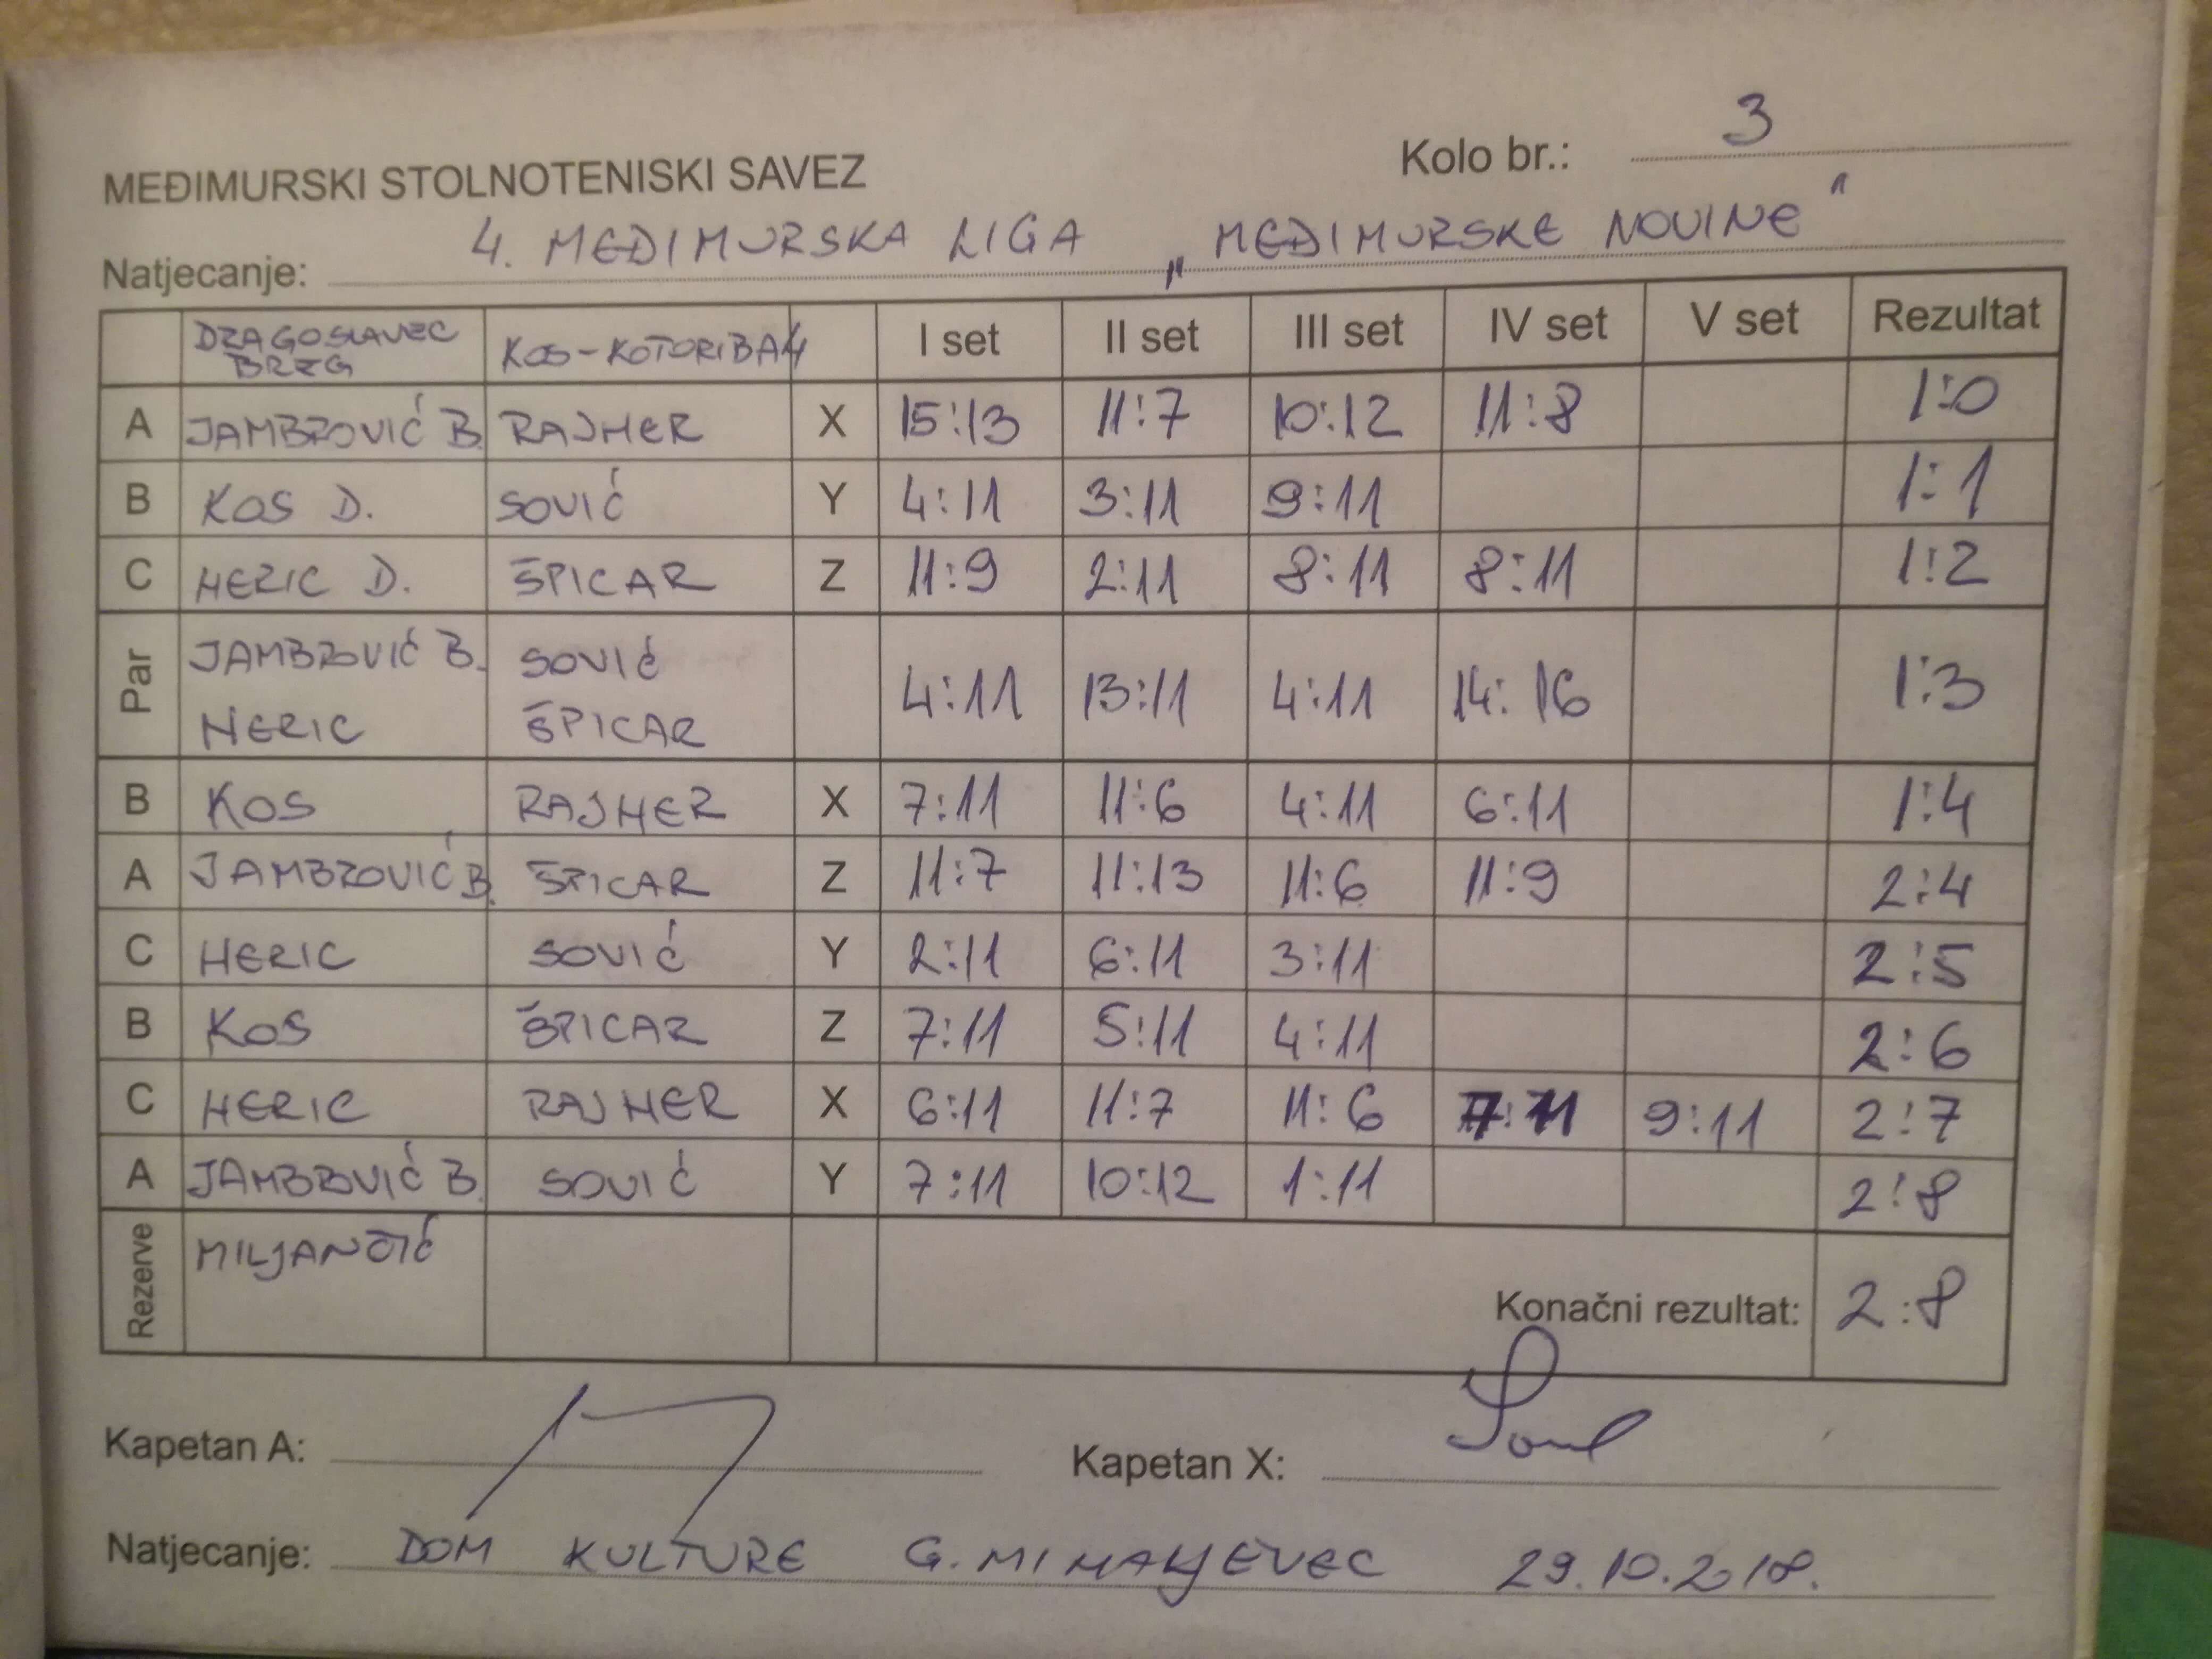 Kolo br.: 3
MEĐIMURSKI STOLNOTENISKI SAVEZ
Natjecanje: 4. MEĐIMURSKA LIGA „MEĐIMURSKE NOVINE"
DRAGOSLAVEC BREG KOS-KOTORIBA 4 I set II set III set IV set V set Rezultat
A JAMBROVIĆ B. RAJHER X 15:13 11:7 10:12 11:8 1:0
B KOS D. SOVIĆ Y 4:11 3:11 9:11 1:1
C HERIC D. ŠPICAR Z 11:9 2:11 8:11 8:11 1:2
Par JAMBROVIĆ B. SOVIĆ
HERIC ŠPICAR 4:11 13:11 4:11 14:16 1:3
B KOS RAJHER X 7:11 11:6 4:11 6:11 1:4
A JAMBROVIĆ B. ŠPICAR Z 11:7 11:13 11:6 11:9 2:4
C HERIC SOVIĆ Y 2:11 6:11 3:11 2:5
B KOS ŠPICAR Z 7:11 5:11 4:11 2:6
C HERIC RAJHER X 6:11 11:7 11:6 7:11 9:11 2:7
A JAMBROVIĆ B. SOVIĆ Y 7:11 10:12 1:11 2:8
Rezerve MILJANČIĆ
Konačni rezultat: 2:8
Kapetan A: Kapetan X:
Natjecanje: DOM KULTURE G. MIHALJEVEC 29.10.2018.